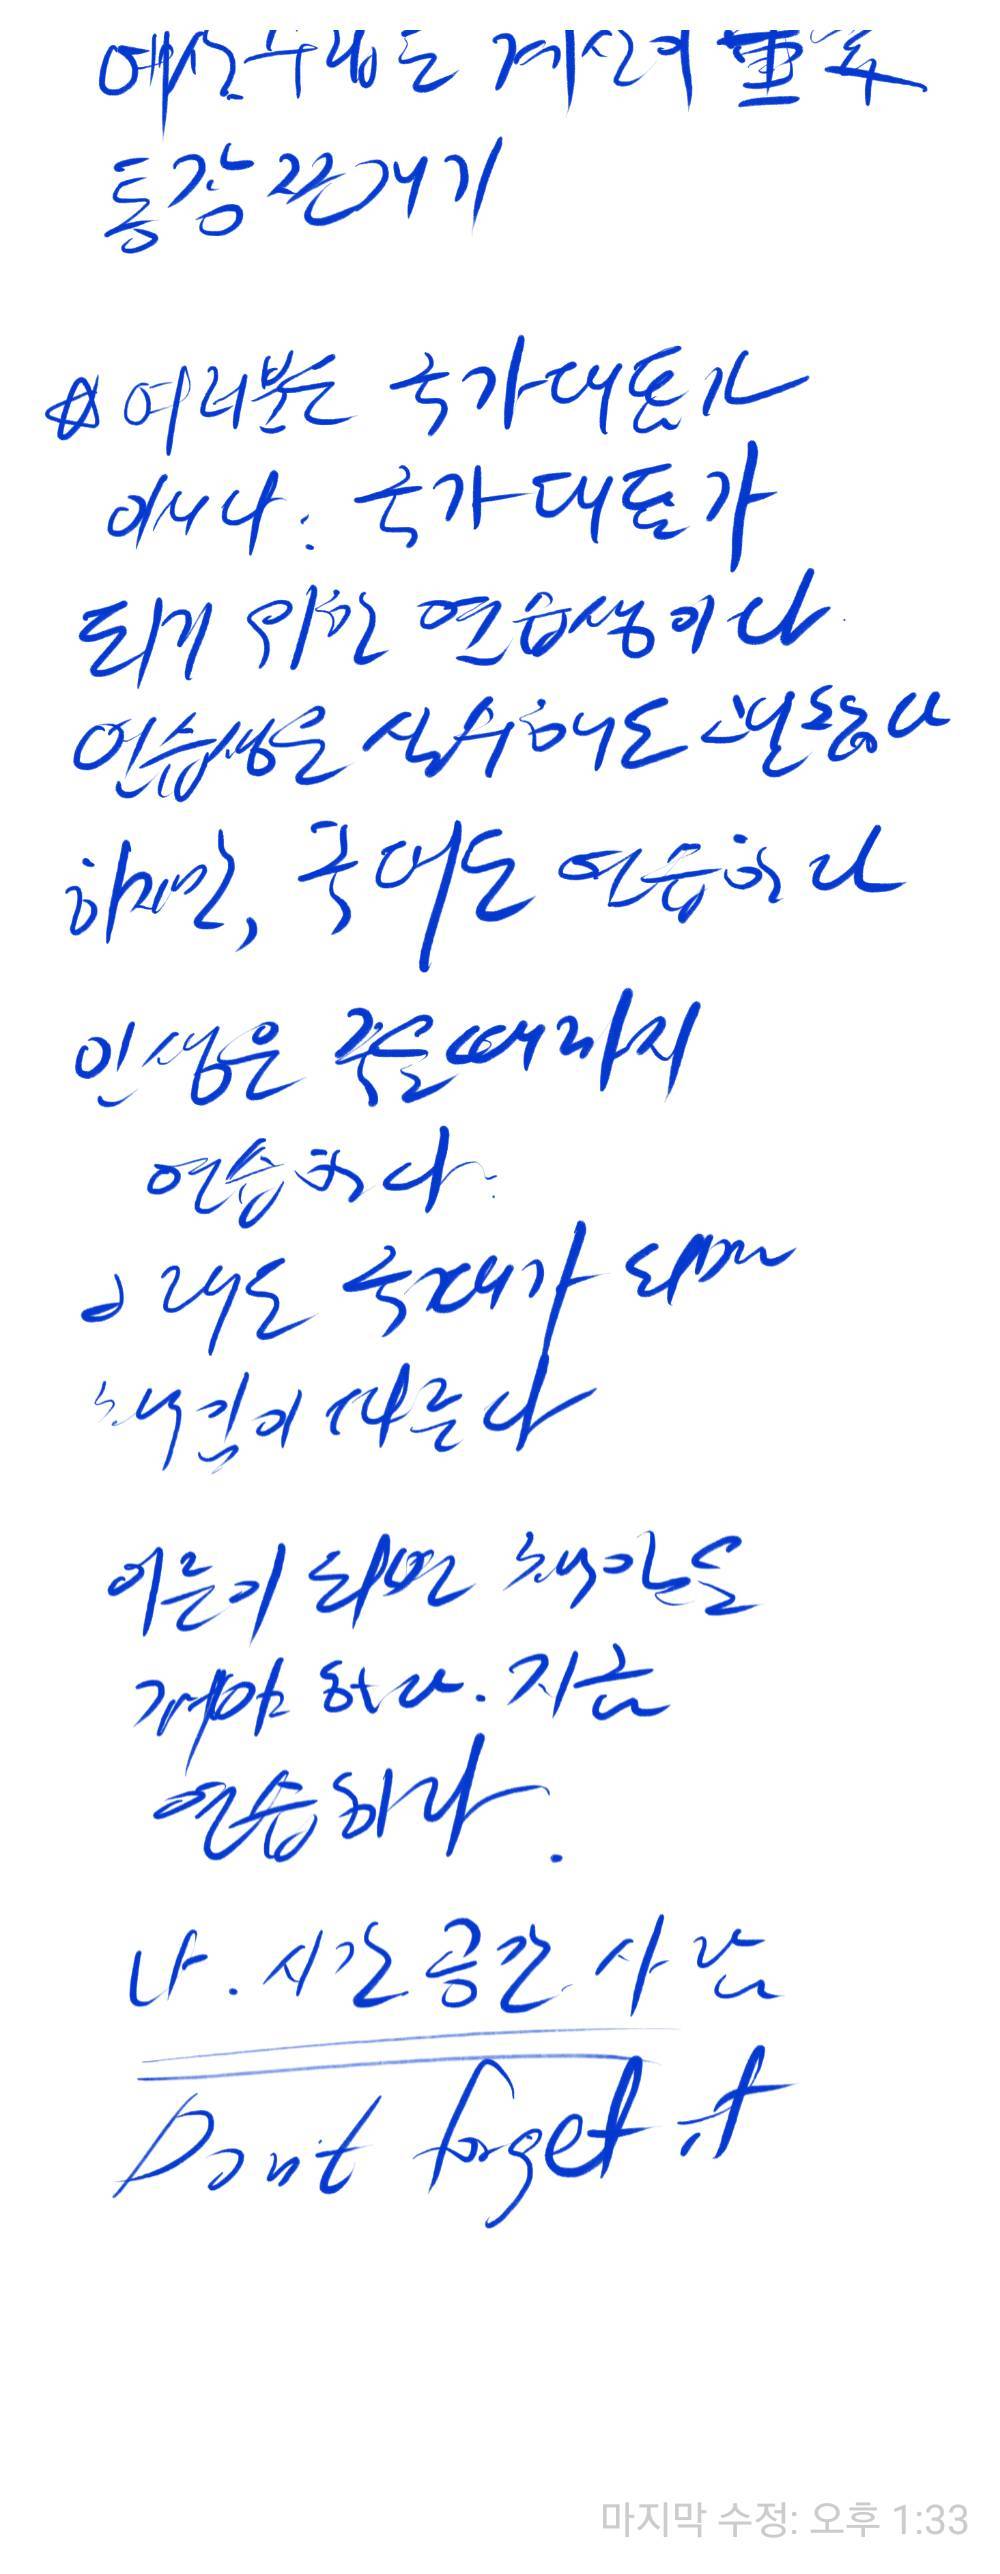 예산수립는 계산이 重要
통장 쪼개기
☆여러분은 국가대표가
아니다. 국가대표가
되기 위한 연습생이다
연습생은 실수해도 괜찮다
하지만, 국대도 연습한다
인생은 죽을때까지
연습하다.
그래도 국대가 되면
책임이 따른다
어른이 되면 책임을
져야 한다. 지금
연습하라.
나. 시간 공간 사람
Don't forget it
마지막 수정: 오후 1:33